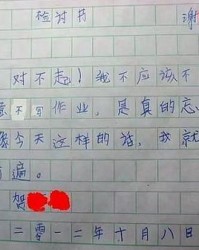 检讨书 谢
对不起！我不应该不
意不写作业，是真的忘
果今天这样的话，我就
遍。
贺
二零一二年十月八日